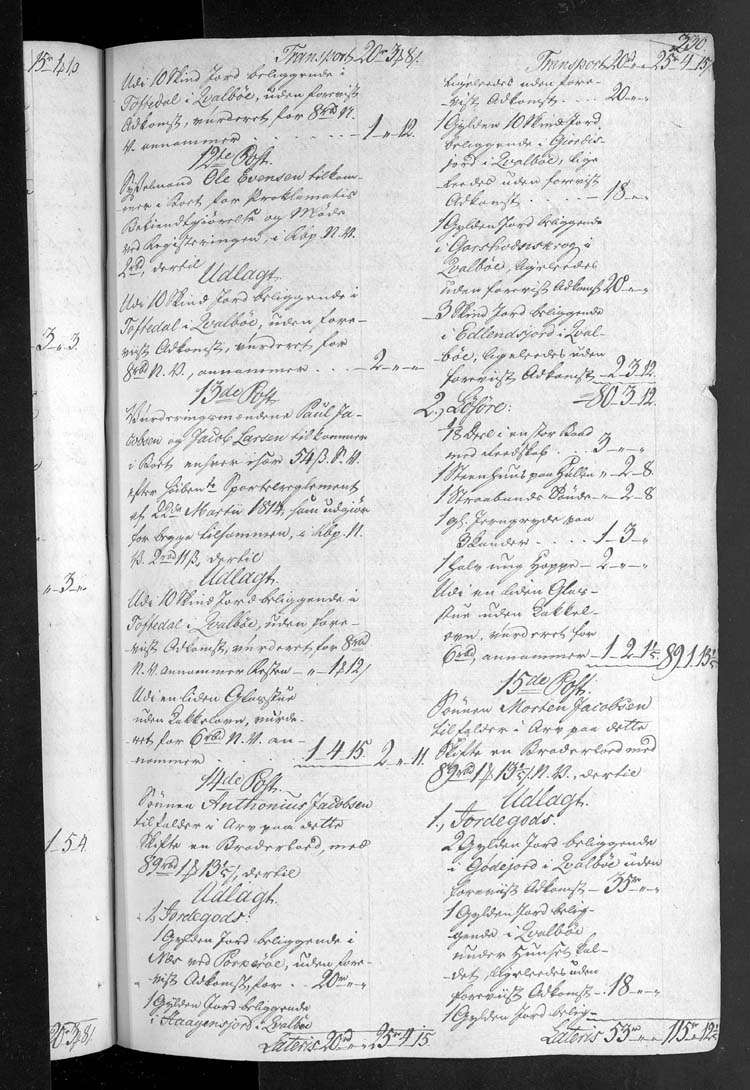 230.
15 1 13
3 „ 3.
„ 3 „
1 5 4
20 3 8
Transport 20 3 8
Udi 10 Skind Jord beliggende i
Toftedal i Qvalbøe, uden foreviist
Adkomst, vurderet for 8 rbd N.
V. annammer . . . . 1 „ 12.
12te Post.
Sysselmand Ole Evensen tilkom-
mer i Boet for Proklamatis
Bekiendtgiørelse og Møde
ved Registeringen, i Rbp. N. V.
2 rbd, dertil
Udlagt.
Udi 10 Skind Jord beliggende i
Toftedal i Qvalbøe, uden fore-
viist Adkomst, vurderet for
8 rbd N. V., annammer . . . 2 „ „
13de Post.
Vurderingsmændene Paul Ja-
cobsen og Jacob Larsen tilkommer
i Boet enhver især 54 ß. S. V.
efter Sportelreglement
af 22de Martii 1814, som udgiør
for begge tilsammen, i Rbp. N.
V. 2 rbd 11 ß, dertil
Udlagt.
Udi 10 Skind Jord beliggende i
Toftedal i Qvalbøe, uden fore-
viist Adkomst, vurderet for 8 rbd
N. V. annammer Resten „ 1 12
Udi en liden Glasstue
uden Kakkelovn, vurde-
ret for 6 rbd N. V. an-
nammer . . . 1 4 15. 2 „ 11.
14de Post.
Sønnen Anthonius Jacobsen
tilfalder i Arv paa dette
Skifte en Broderlod, med
89 rbd 1 13½, dertil
Udlagt.
1, Jordegods:
1 Gylden Jord beliggende i
Næs ved Porkerøe, uden fore-
viist Adkomst, for . . 20 „ „
1 Gylden Jord beliggende
i Haagensjord i Qvalbøe
Lateris 20 „ „ 25 4 15
Transport 20 „ „ 25 4 15
ligeledes uden fore-
viist Adkomst . . . 20 „ „
1 Gylden 10 Skind Jord
beliggende i
jord i Qvalbøe, lige
ledes uden foreviist
Adkomst . . . 18 „ „
1 Gylden Jord beliggende
i
Qvalbøe, ligeledes
uden foreviist Adkomst 20 „ „
3 Skind Jord beliggende
i Edlendsjord i Qval-
bøe, ligeledes uden
foreviist Adkomst 2 3 12.
80 3 12.
2, Løsøre:
1/8 Deel i en stor Baad
med Reedskab . . 3 „ „
1 Steenhuus paa „ 2 8.
1 Skinde „ 2 8
1 gl. Jerngryde paa
3 Kander . . . 1 3 „
1 halv ung Hoppe 2 „ „
Udi en liden Glas-
stue uden Kakkel-
ovn, vurderet for
6 rbd, annammer 1 2 1½ 89 1 13½
15de Post.
Sønnen Morten Jacobsen
tilfalder i Arv paa dette
Skifte en Broderlod med
89 rbd 1 13½ N. V., dertil
Udlagt.
1, Jordegods:
2 Gylden Jord beliggende
i Gødejord i Qvalbøe uden
foreviist Adkomst 35 „ „
1 Gylden Jord belig-
gende i Qvalbøe
under Huuset kal-
det, ligeledes uden
foreviist Adkomst 18 „ „
1 Gylden Jord belig-
Lateris 53 „ „ 115 „ 12½